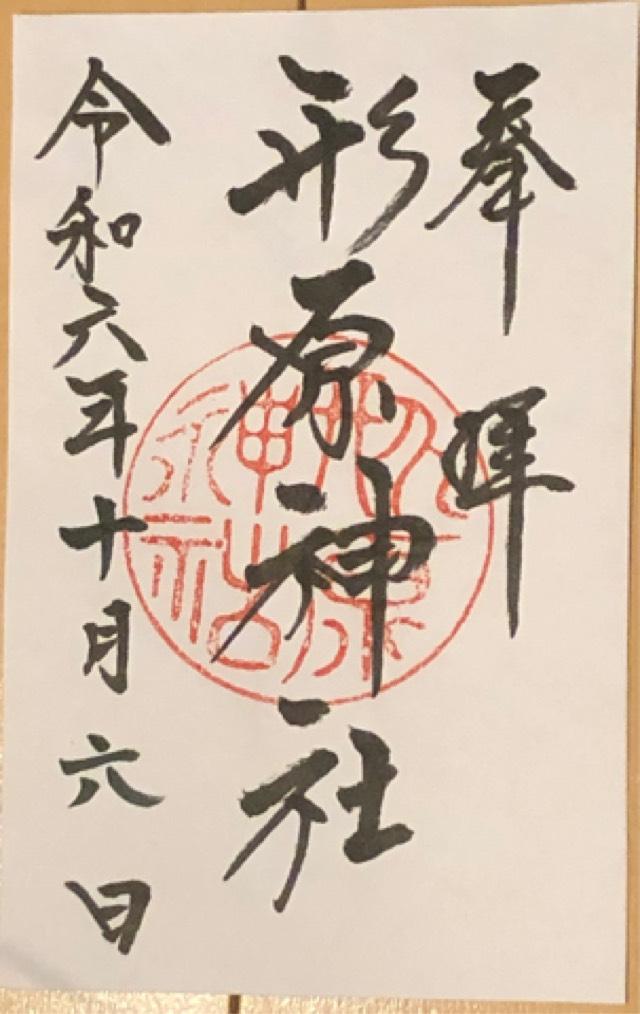 奉拝
形原神社
令和六年十月六日